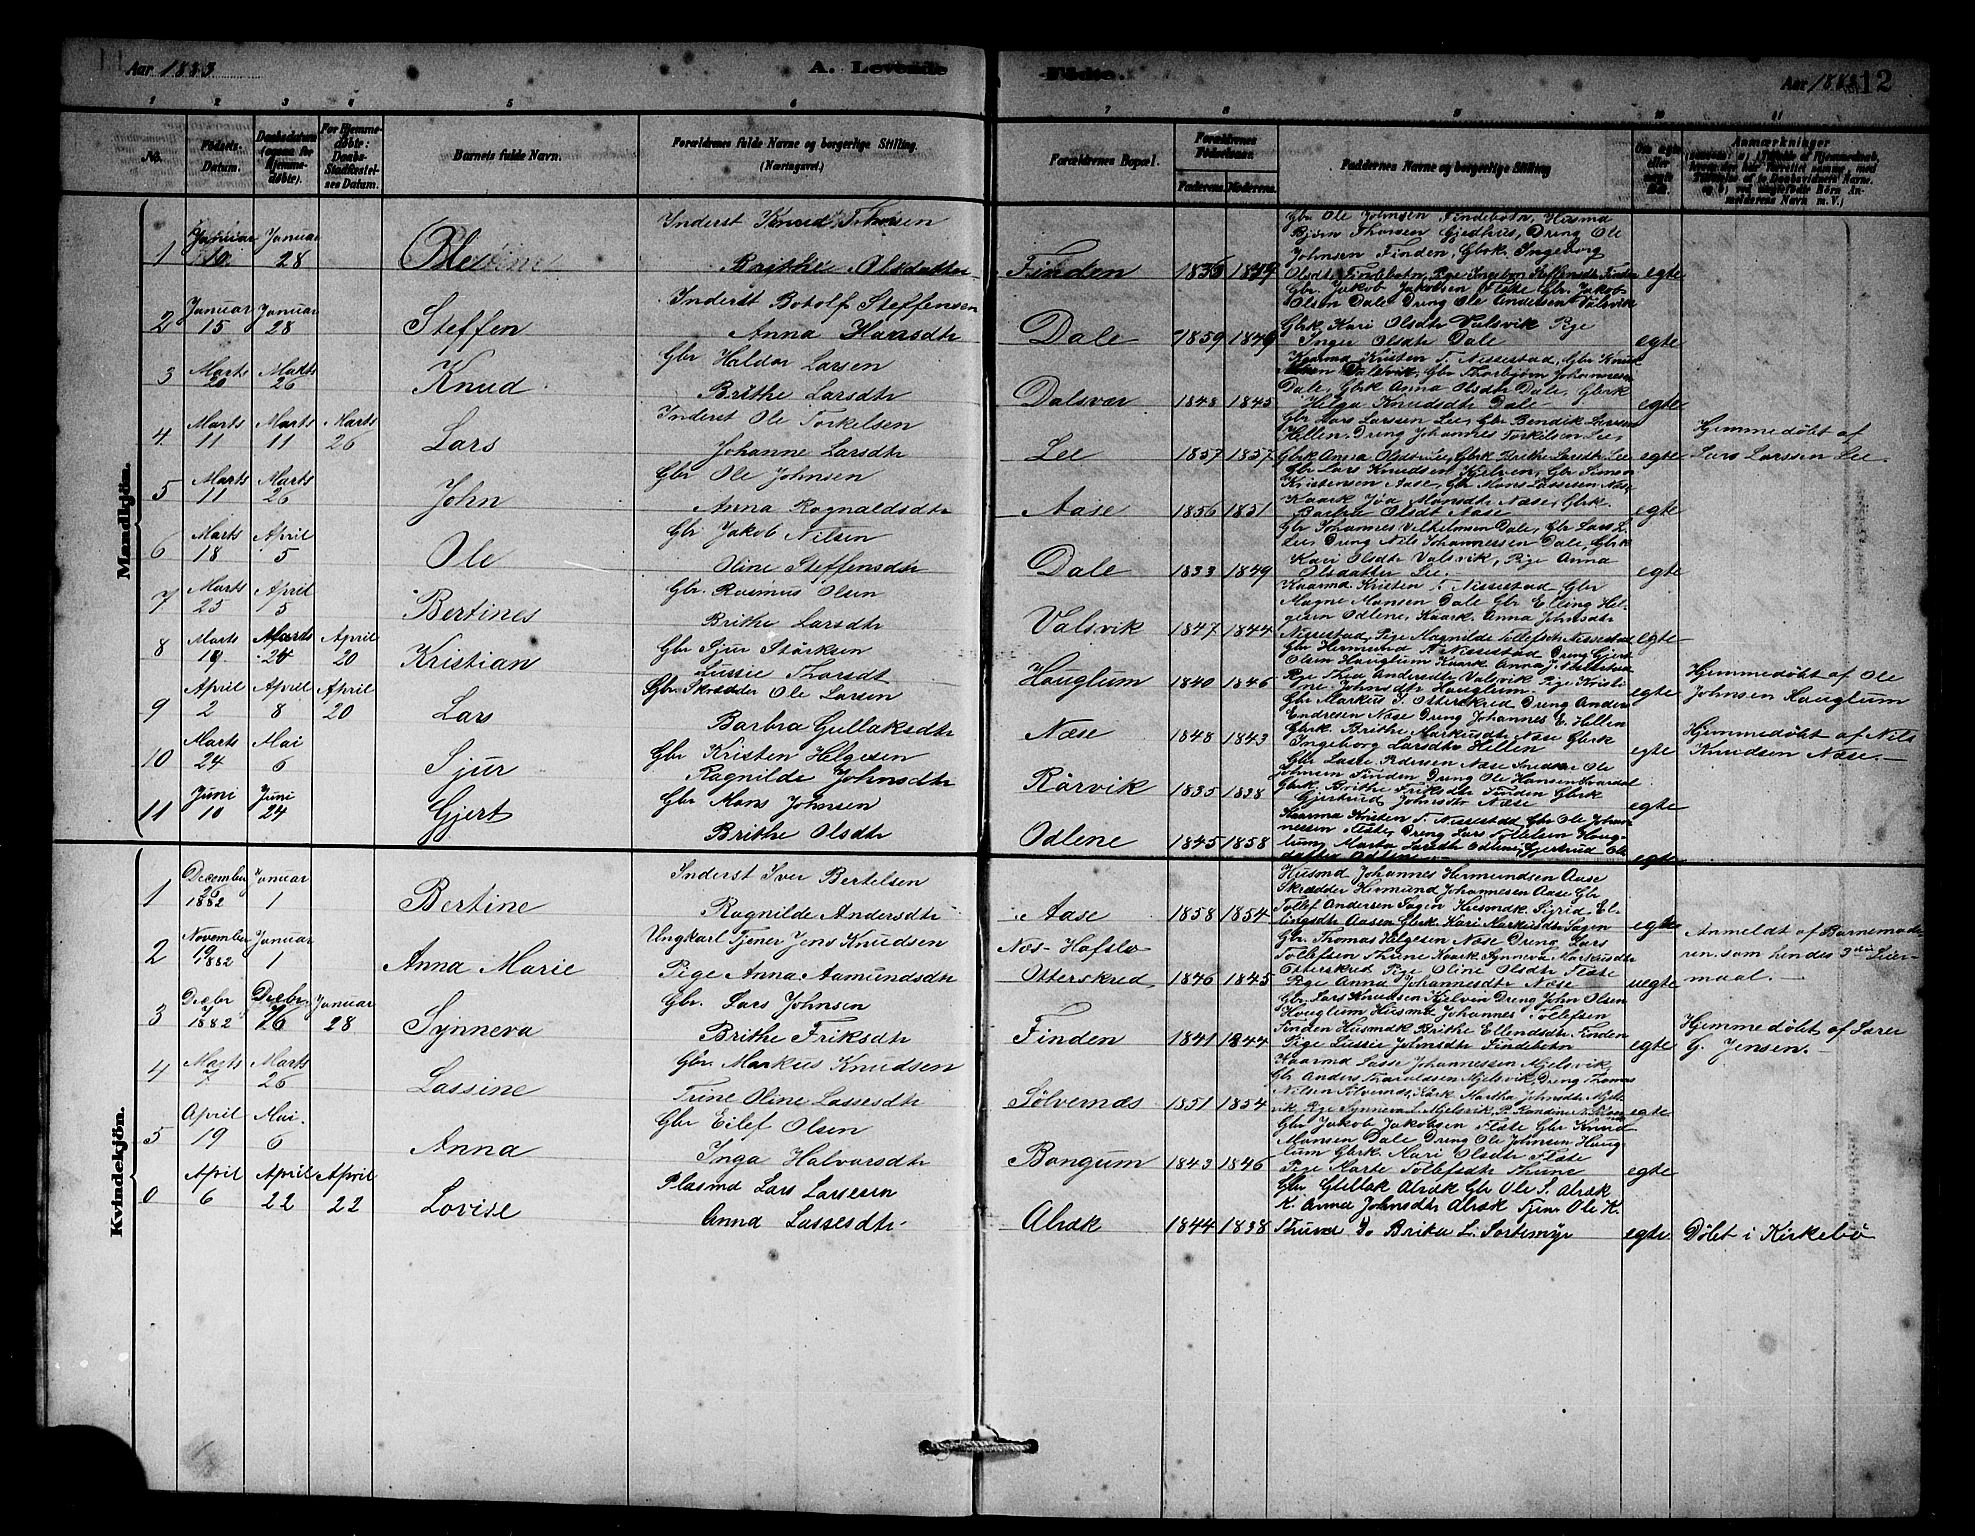 Aar 1883
A. Levende
Fødte.
Aar 1883
12
1 2 3 4 5 6 7 8 9 10 11
No.
Fødsels-
Datum.
Daabsdatum
(ogsaa for
Hjemme-
døbte).
For Hjemme-
døbte:
Daabs-
Stadfæstel-
ses Datum.
Barnets fulde Navn.
Forældrenes fulde Navne og borgerlige Stilling.
(Næringsvei.)
Forældrenes Bopæl.
Forældrenes
Fødselsaar
Faderens. Moderens.
Faddernes Navne og borgerlige Stilling
Om ægte
eller
uægte
født.
Anmærkninger
Mandkjön.
1 Januar 10 Januar 28
Inderst Knud
Brithe Olsdatter
Finden 1836
Gbr Ole Johnsen Findebotn, Husmd
Bjørn Thorsen Gjedhus, Dreng Ole
Johnsen Finden, Gbrk. Ingeborg
egte
2 Januar 15 Januar 28
Steffen
Inderst Botolf Steffensen
Anna Hansdtr
Dale 1859 1849
Gbr. Jakob Jakobsen Flete Gbr. Jakob
Olsen Dale Dreng Ole Andersen Valsvik
Gbrk Kari Olsdtr Valsvik Pge
Inger Olsdtr Dale
egte
3 Marts 20 Marts 26
Knud
Gbr Haldor Larsen
Brithe Larsdtr
Dalsvær 1848 1845
Kaarmd Kristen T. Nissestad, Gbr Knud
Dale, Gbrk Anna Olsdtr Dale, Gbrk
Helga Knudsdtr Dale
egte
4 Marts 11 Marts 11 Marts 26
Lars
Inderst Ole Torkelsen
Johanne Larsdtr
Lee 1857 1857
Gbr Lars Larssen Lee, Gbr Bendik Larssen
Hellen Dreng Johannes Torkelsen Lee,
Gbrk Anna Olsdtr Lee, Gbrk Brithe Larsdtr Lee
egte
Hjemmedøbt af
Lars Larssen Lee.
5 Marts 11 Marts 26
John
Gbr Ole Johnsen
Anna Ragnaldsdtr
Aase 1856 1851
Gbr Lars Knudsen Kjelven, Gbr Simon
Kristensen Aase, Gbr Mons Lassesen Næse,
Barbra Olsdt Aase
egte
6 Marts 18 April 5
Ole
Gbr Jakob Nilsen
Oline Steffensdtr
Dale 1833 1849
Gbr Johannes Vilhelmsen Dale, Gbr Lars L.
Lee, Dreng Nils Johannessen Dale, Gbrk
Kari Olsdtr Valsvik, Pge Anna
Olsdatter Lee.
egte
7 Marts 25 April 5
Bertines
Gbr. Rasmus Olsen
Brithe Larsdtr
Valsvik 1847 1844
Kaarmd Kristen T. Nissestad Gbr
Magne Mansen Dale Gbr Elling Hel-
gesen Odlene, Kaark. Anna Johnsdtr
Nissestad, Pge Magnilde Tollefsdtr Nissestad
egte
8 Marts 19 Marts 20 April 20
Kristian
Gbr Sjur Størksen
Lussie Thorsdt
Houglum 1840 1846
Gbr Hermund T. Nissestad Dreng Gjert
Olsen Houglum Kaark Anna J. Nissestad
Pge Thea Andersdtr Valsvik Pge Kristi
ine Johnsdtr Houglum
egte
Hjemmedøbt af Ole
Johnsen Houglum
9 April 2 April 8 April 20
Lars
Gbr Skrædder Ole Larsen
Barbra Gullaksdtr
Næse 1848 1843
Gbr Markus J. Otterskred Dreng Anders
Endresen Næse Dreng Johannes E. Hellen
Gbrk Brithe Markusdtr Næse Gbrk
Ingeborg Larsdtr Hellen
egte
Hjemmedøbt af Nils
Knudsen Næse.
10 Marts 24 Mai 6
Sjur
Gbr Kristen Helgesen
Ragnilde Johnsdtr
Rörvik 1835 1838
Gbr Lasse Pedersen Næse Snedker Ole
Johnsen Finden Dreng Ole Hansen
Gbrk Brithe Friksdtr Finden Gbrk
Gjertrud Johnsdtr Næse
egte
11 Juni 10 Juni 24
Gjert
Gbr Mons Johnsen
Brithe Olsdtr
Odlene 1845 1858
Kaarmd Kristen T. Nissestad, Gbr Ole Johan-
nessen Flete, Dreng Lars Tollefsen Houg-
lum, Marta Larsdtr Odlene, Gjertrud Ols
datter Odlene
egte
Kvindekjön.
1 December 26 1882 Januar 1
Bertine
Inderst Iver Bertelsen
Ragnilde Andersdtr
Aase 1858 1854
Husmd Johannes Hermundsen Aase
Skrædder Hermund Johannesen Aase Gbr
Tollef Andersen Sagen Husmdk Sigrid El-
lingsdtr Aasen Gbrk Kari Markusdtr Sagen
egte
2 November 19 1882 Januar 1
Anna Marie
Ungkarl Tjener Jens Knudsen
Pige Anna Aamundsdtr
Næs- Hafslo
Otterskred 1846 1845
Gbr. Thomas Helgesen Næse Dreng Lars
Tollefsen Thune Kaark Synneva Markusdtr
Otterskred Pge Oline Olsdtr Flete
Pge Anna Johannesdtr Næse
uegte
Anmeldt af Barnemode-
ren som hendes 3die Leier-
maal.
3 Decbr 7 1882 Decbr. 26 Januar 28
Synneva
Gbr. Lars Johnsen
Brithe Friksdtr
Finden 1841 1844
Gbr. Lars Knudsen Kjelven Dreng John Olsen
Houglum Husmd Johannes Tollefsen
Finden Husmdk Brithe Ellendsdtr Finden
Pige Lussie Johnsdtr Findebotn
egte
Hjemmedøbt af Lærer
G. Jensen.
4 Marts 7 Marts 26
Lassine
Gbr. Markus Knudsen
Trine Oline Lassesdtr
Sølvernæs 1851 1854
Kaarmd Lasse Johannessen Mjelsvik,
Gbr Anders Tharaldsen Mjelsvik, Dreng Thomas
egte
5 April 19 Mai. 6
Anna
Gbr Eilef Olsen
Inga Halvarsdtr
Bongum 1843 1846
Gbr Jakob Jakobsen Flete Gbr Knud
Mansen Dale Dreng Ole Johnsen Houg-
lum Gbrk. Kari Olsdtr Flete
Pige Marte Tollefsdtr Thune
egte
0 April 6 April 22 April 22
Lovise
Plasmd Lars Larsesen
Anna Lassesdtr
Alræk 1844 1838
Gbr Gullak Alræk Gbr Ole S. Alræk
K. Anna Johnsdtr Alræk Tjen. Ole K.
Thune Do Brita L. Sortemyr
egte
Döbt i Kirkebö